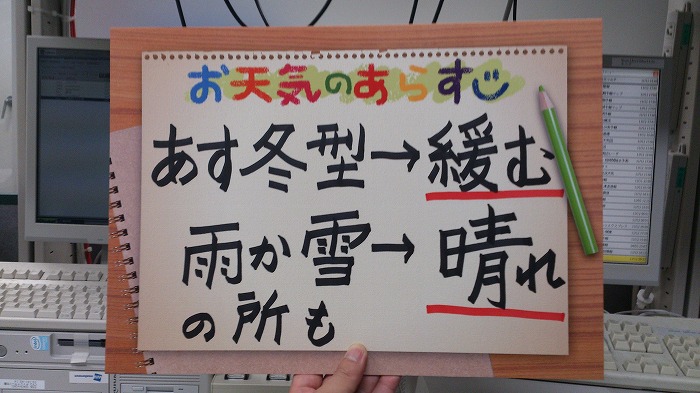 お天気のあらすじ
あす冬型→緩む
雨か雪→晴れ
の所も